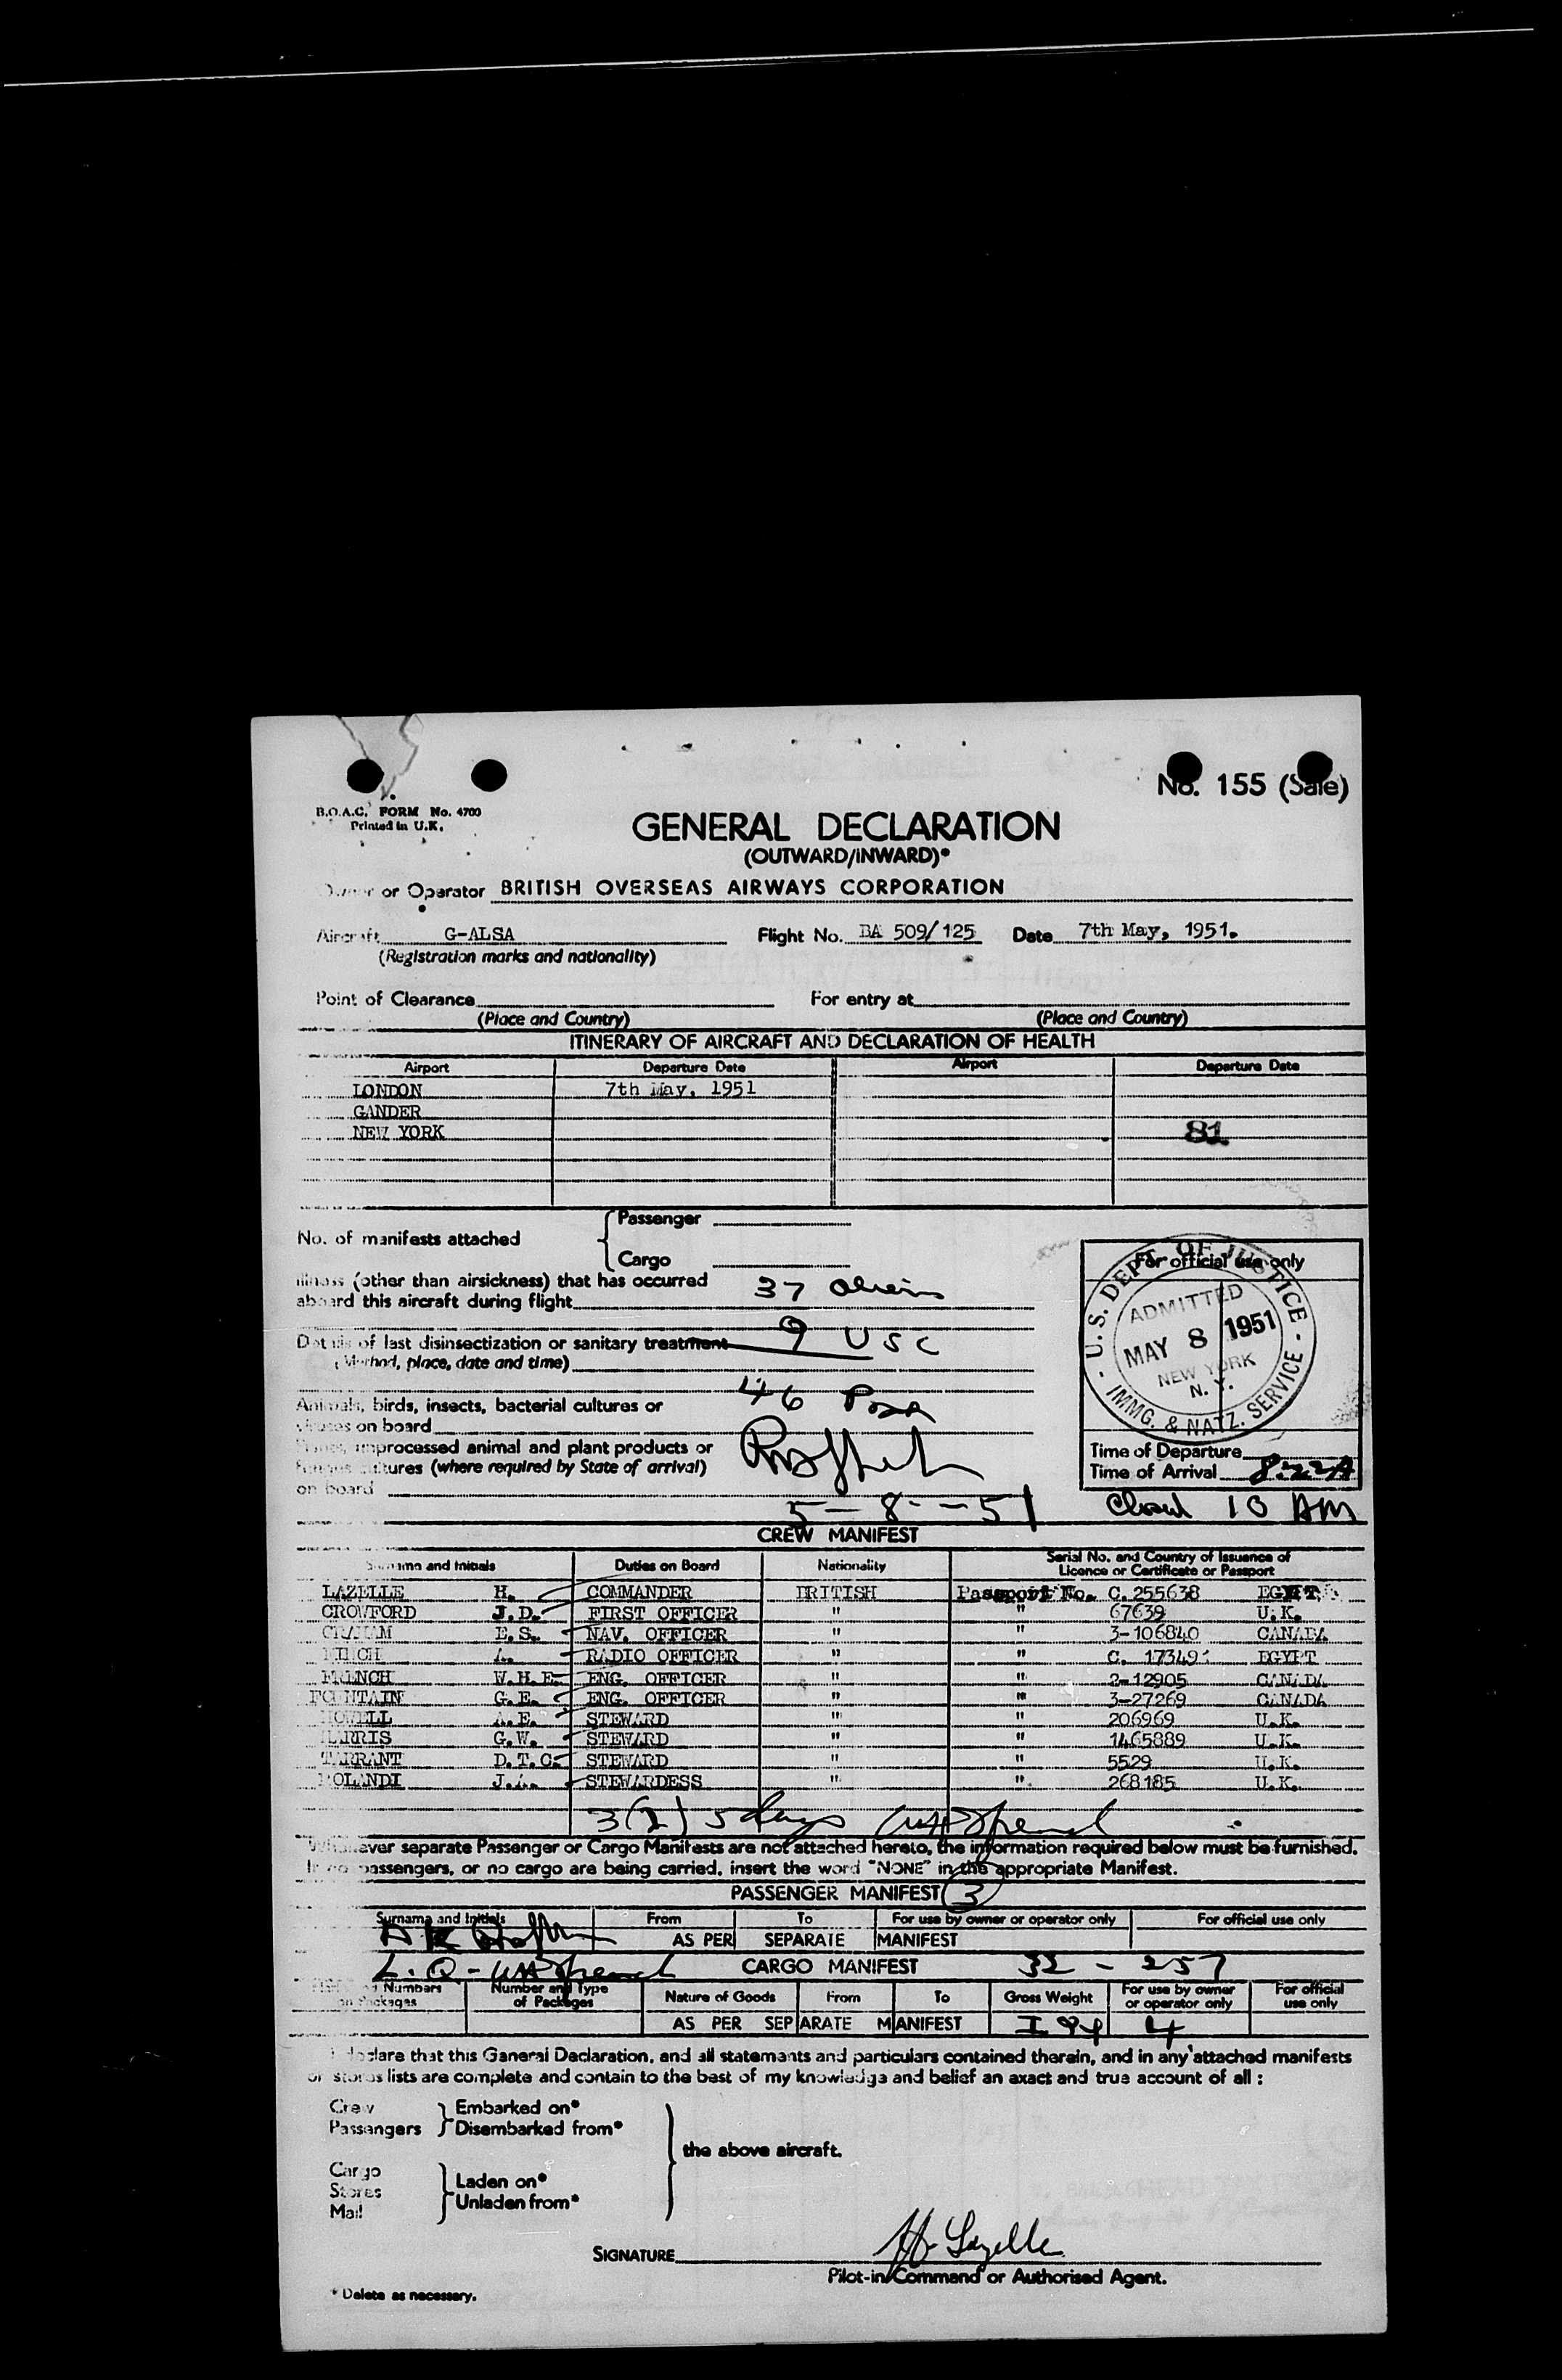 No. 155 (Sale)
B.O.A.C. FORM No. 4700
Printed in U.K.
GENERAL DECLARATION
(OUTWARD/INWARD)*
Owner or Operator BRITISH OVERSEAS AIRWAYS CORPORATION
Aircraft G-ALSA Flight No. BA 509/125 Date 7th May, 1951.
(Registration marks and nationality)
Point of Clearance For entry at
(Place and Country) (Place and Country)
ITINERARY OF AIRCRAFT AND DECLARATION OF HEALTH
Airport Departure Date Airport Departure Date
LONDON 7th May, 1951
GANDER
NEW YORK 81
No. of manifests attached Passenger
Cargo
Illness (other than airsickness) that has occurred
aboard this aircraft during flight 37 Aliens
Details of last disinsectization or sanitary treatment 9 USC
(Method, place, date and time)
46 Pax
Animals, birds, insects, bacterial cultures or
viruses on board
unprocessed animal and plant products or
cultures (where required by State of arrival)
on board
5-8--51
For official use only
U.S. DEPT. OF JUSTICE - IMMG. & NATZ. SERVICE -
ADMITTED
MAY 8 1951
NEW YORK
N. Y.
Time of Departure
Time of Arrival 8:22A
10 AM
CREW MANIFEST
Surname and Initials Duties on Board Nationality Serial No. and Country of Issuance of
Licence or Certificate or Passport
LAZELLE H. COMMANDER BRITISH Passport No. C.255638 EGYPT
CROWFORD J.D. FIRST OFFICER " " 67639 U.K.
GRAHAM E.S. NAV. OFFICER " " 3-106840 CANADA
A. RADIO OFFICER " " C. 17349 EGYPT
FRENCH W.H.E. ENG. OFFICER " " 2-12905 CANADA
FOUNTAIN G.E. ENG. OFFICER " " 3-27269 CANADA
HOWELL A.E. STEWARD " " 206969 U.K.
HARRIS G.W. STEWARD " " 1465889 U.K.
TARRANT D.T.C. STEWARD " " 5529 U.K.
J.A. STEWARDESS " " 268185 U.K.
3(2) 5 days
Whenever separate Passenger or Cargo Manifests are not attached hereto, the information required below must be furnished.
If no passengers, or no cargo are being carried, insert the word "NONE" in the appropriate Manifest.
PASSENGER MANIFEST 3
Surname and Initials From To For use by owner or operator only For official use only
AS PER SEPARATE MANIFEST
CARGO MANIFEST 32 - 257
Numbers on Packages Number and Type of Packages Nature of Goods From To Gross Weight For use by owner or operator only For official use only
AS PER SEPARATE MANIFEST I 94 4
I declare that this General Declaration, and all statements and particulars contained therein, and in any attached manifests
or stores lists are complete and contain to the best of my knowledge and belief an exact and true account of all :
Crew Embarked on*
Passengers Disembarked from*
the above aircraft.
Cargo
Stores Laden on*
Mail Unladen from*
SIGNATURE H. Lazelle
Pilot-in-Command or Authorised Agent.
* Delete as necessary.